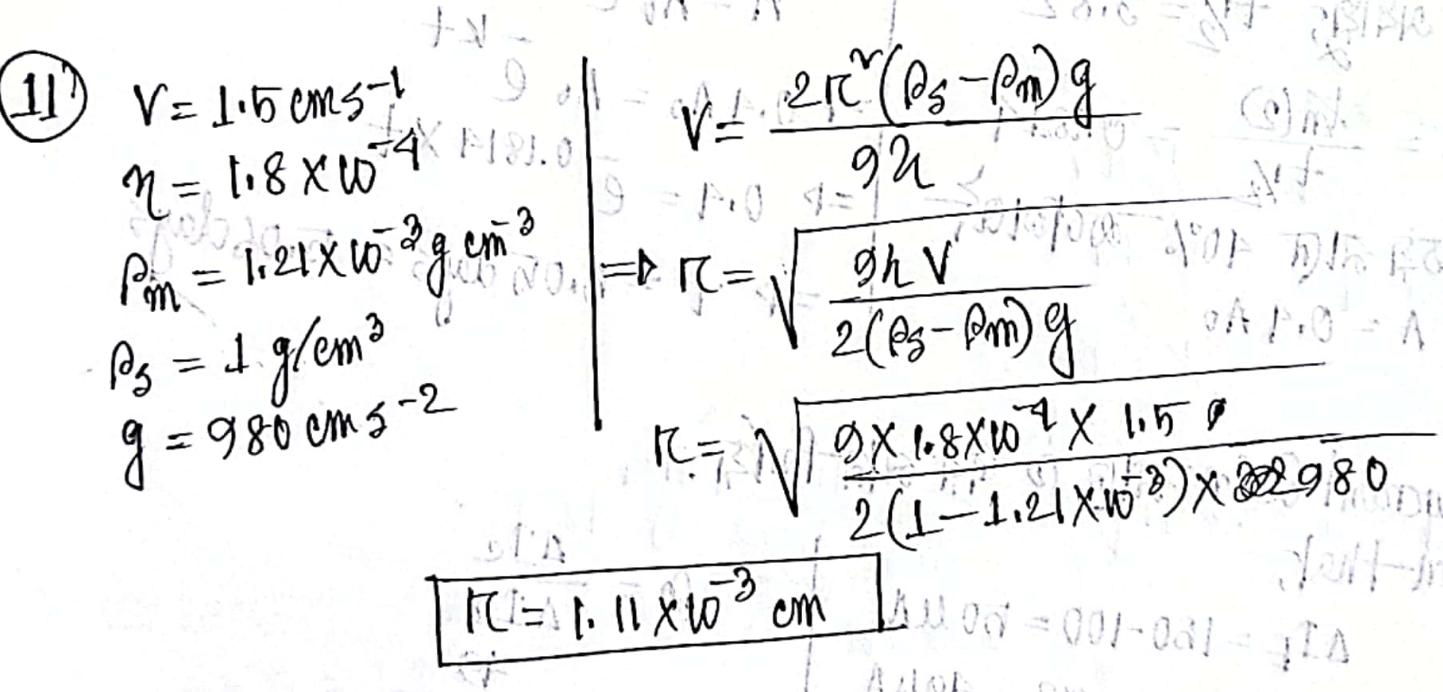 11)
V = 1.5 cm s⁻¹
η = 1.8 × 10⁻⁴
ρm = 1.21 × 10⁻³ g cm⁻³
ρs = 1 g/cm³
g = 980 cm s⁻²
V = 2r²(ρs - ρm) g / 9η
⇒ r = √(9η V / 2(ρs - ρm) g)
r = √(9 × 1.8 × 10⁻⁴ × 1.5 / 2(1 - 1.21 × 10⁻³) × 980)
r = 1.11 × 10⁻³ cm